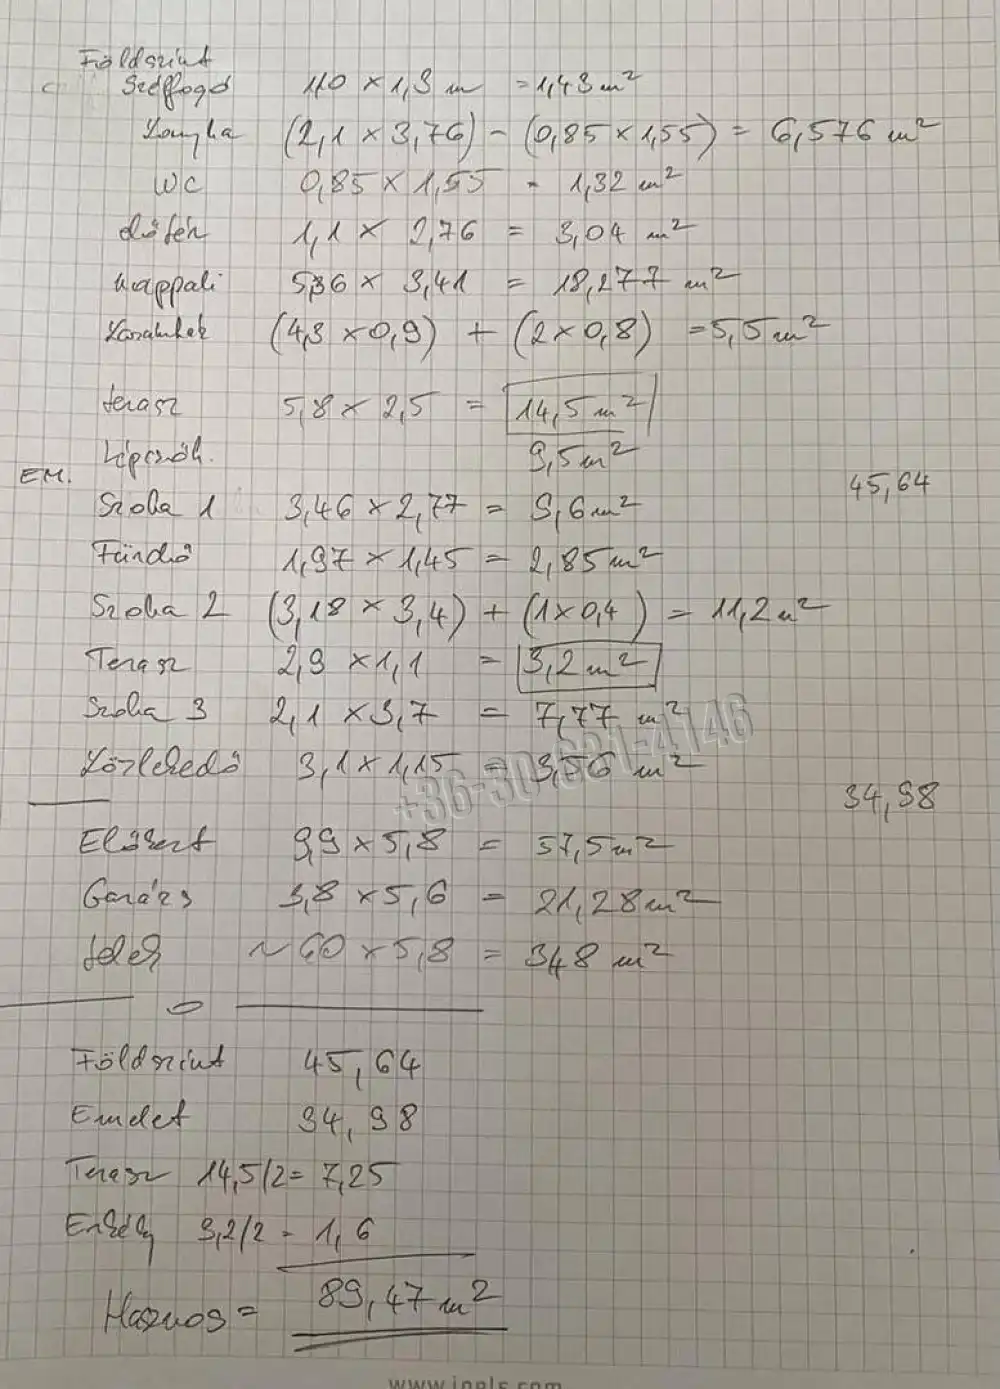 Földszint
Szélfogó 1,10 x 1,3 m = 1,43 m²
Konyha (2,1 x 3,76) - (0,85 x 1,55) = 6,576 m²
WC 0,85 x 1,55 = 1,32 m²
1,1 x 2,76 = 3,04 m²
Nappali 5,36 x 3,41 = 18,277 m²
(4,3 x 0,9) + (2 x 0,8) = 5,5 m²
terasz 5,8 x 2,5 = 14,5 m²
Lépcsők. 9,5 m²
EM.
45,64
Szoba 1 3,46 x 2,77 = 9,6 m²
Fürdő 1,97 x 1,45 = 2,85 m²
Szoba 2 (3,18 x 3,4) + (1 x 0,4) = 11,2 m²
Terasz 2,9 x 1,1 = 3,2 m²
Szoba 3 2,1 x 3,7 = 7,77 m²
Közlekedő 3,1 x 1,15 = 3,56 m²
+36-30-631-4146
34,98
Előkert 9,9 x 5,8 = 57,5 m²
Garázs 3,8 x 5,6 = 21,28 m²
telek ~ 60 x 5,8 = 348 m²
Földszint 45,64
Emelet 34,98
Terasz 14,5/2 = 7,25
Erkély 3,2/2 = 1,6
Hasznos = 89,47 m²